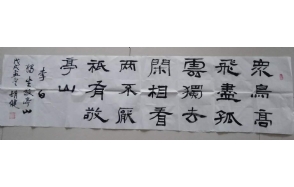 衆鳥高
飛盡孤
雲獨去
閑相看
兩不厭
衹有敬
亭山
李白
獨坐敬亭山
戊戌